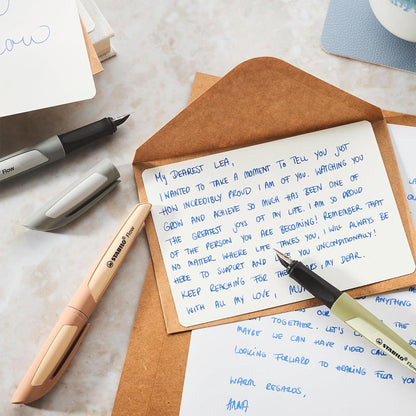 ow
Flow
STABILO Flow
MY DEAREST LEA,
I WANTED TO TAKE A MOMENT TO TELL YOU JUST
HOW INCREDIBLY PROUD I AM OF YOU. WATCHING YOU
GROW AND ACHIEVE SO MUCH HAS BEEN ONE OF
THE GREATEST JOYS OF MY LIFE. I AM SO PROUD
OF THE PERSON YOU ARE BECOMING! REMEMBER THAT
NO MATTER WHERE LIFE TAKES YOU, I WILL ALWAYS BE
HERE TO SUPPORT AND YOU UNCONDITIONALLY!
KEEP REACHING FOR THE , MY DEAR.
WITH ALL MY LOVE,
STABILO Flow
ANYTHING
TOGETHER. LET'S
MAYBE WE CAN HAVE VIDEO CAL
LOOKING FORWARD TO HEARING FROM YO
WARM REGARDS,
ANNA